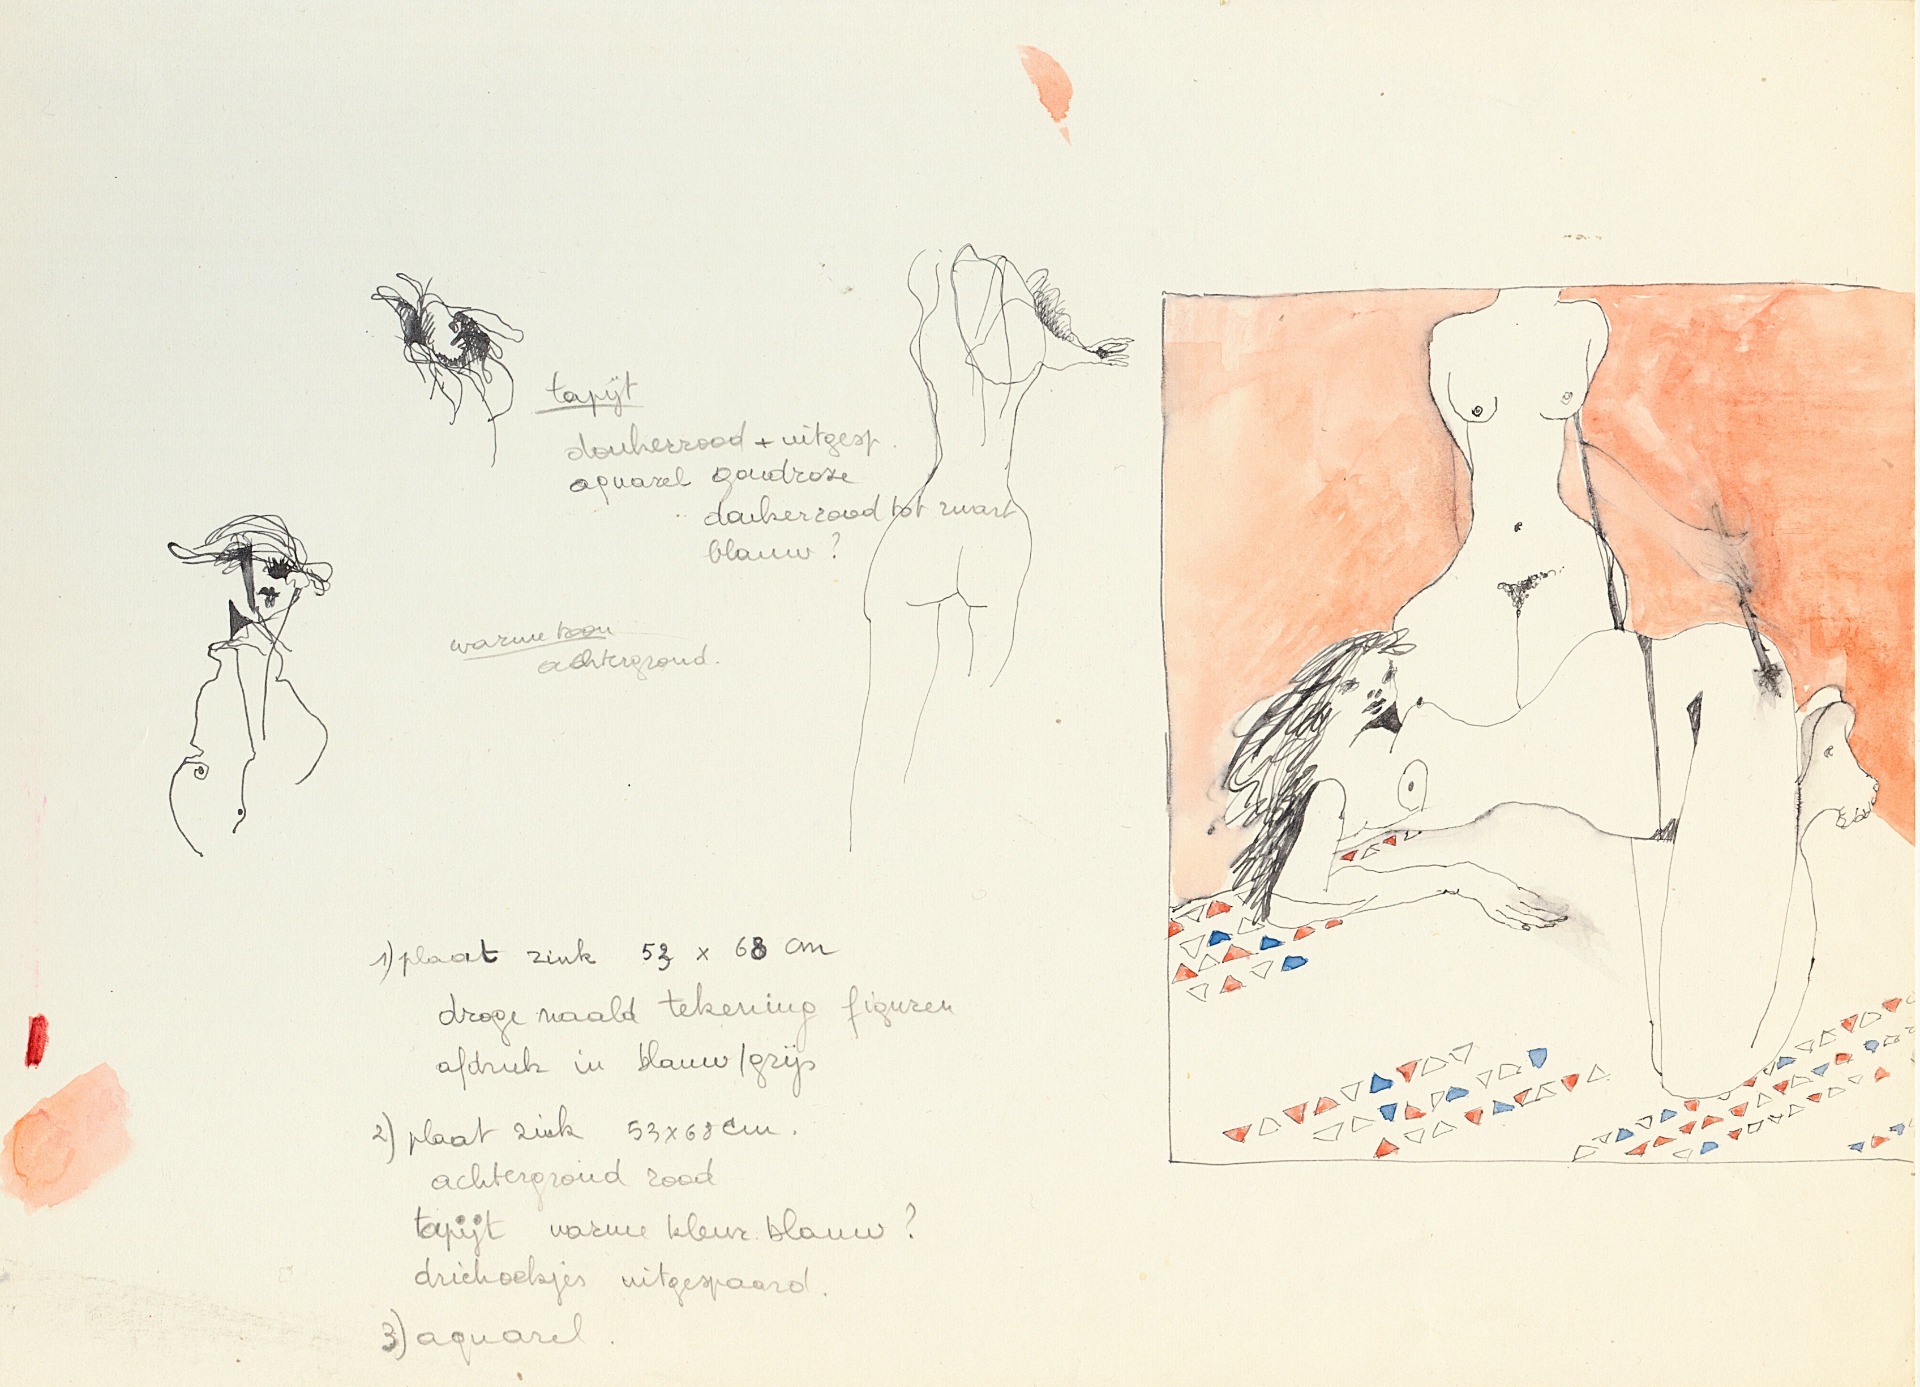 tapijt
donkerrood + uitgesp.
aquarel goudroze
donkerrood tot zwart
blauw ?
warme toon
achtergrond.
1) plaat zink 53 x 68 cm
droge naald tekening figuren
afdruk in blauw/grijs
2) plaat zink 53x68 cm.
achtergrond rood
tapijt warme kleur blauw ?
driehoekjes uitgespaard.
3) aquarel.